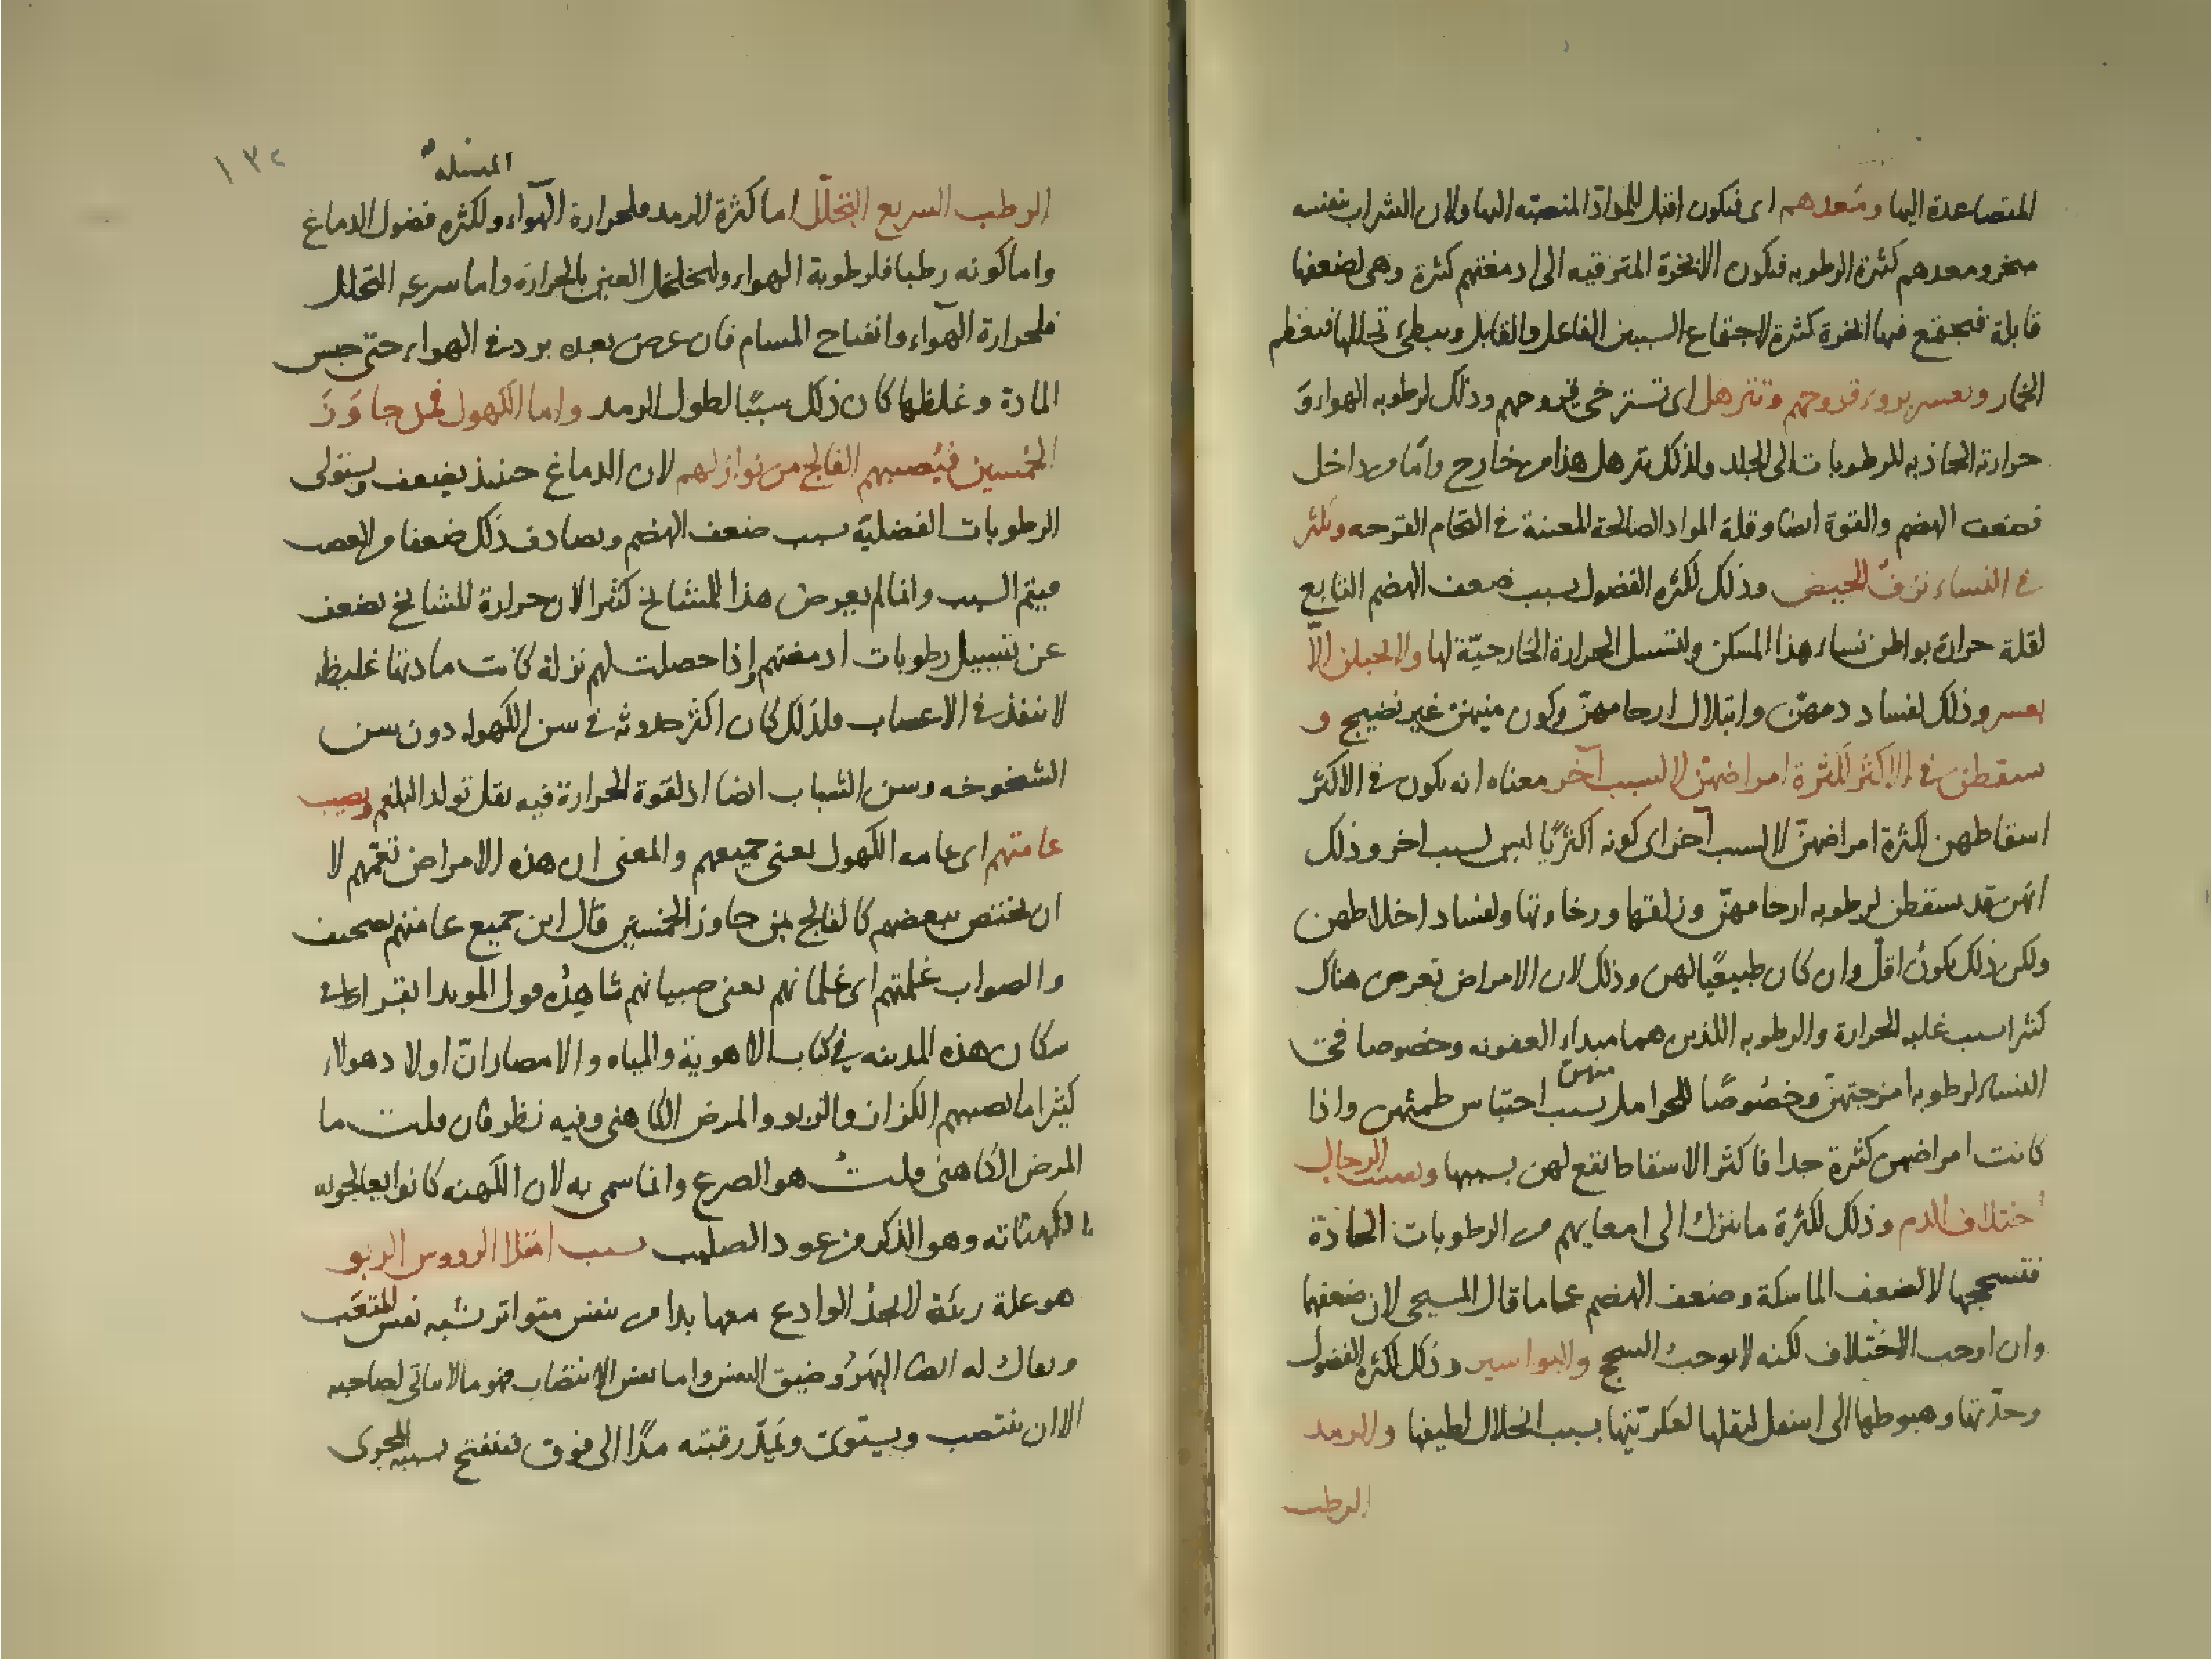 المتصاعدة اليها ومعدهم اى فيكون اقبل للمواد المنصبه اليها ولان الشراب بنفسه
مبخر ومعدهم كثيرة الرطوبه فيكون الابخرة المترقيه الى ادمغتهم كثيرة وهى لضعفها
قابلة فيجتمع فيها ابخرة كثيرة لاجتماع السببين الفاعل والقابل ويبطئ تحللها فيعظم
الخمار ويعسر بروء قروحهم وتترهل اى تسترخى قروحهم وذلك لرطوبه الهواء و
حرارته الجاذبه للرطوبات الى الجلد ولذلك تترهل هذا من خارج واما من داخل
فضعف الهضم والقوة ايضا وقلة المواد الصالحة المعينة فى التحام القرحه ويكثر
فى النساء نزف الحيض وذلك لكثره الفضول بسبب ضعف الهضم التابع
لقلة حرارة بواطن نساء هذا المسكن ولتسييل الحرارة الخارجيّة لها ولا يحبلن الّا
بعسر وذلك لفساد دمهنّ وابتلال ارحامهنّ وكون منيهنّ غير نضيج و
يسقطن فى الاكثر لكثرة امراضهنّ لا لسبب آخر معناه انه يكون فى الاكثر
اسقاطهن لكثرة امراضهنّ لا لسبب آخر اى كونه اكثريّا ليس لسبب اخر وذلك
انهن قد يسقطن لرطوبه ارحامهنّ وزلقتها ورخاوتها ولفساد اخلاطهن
ولكن ذلك يكون اقل وان كان طبيعيّا لهن وذلك لان الامراض تعرض هناك
كثيرا بسبب غلبه الحرارة والرطوبه اللذين هما مبداء العفونه وخصوصا فى
النساء لرطوبه امزجتهنّ وخصوصًا للحوامل منهنّ بسبب احتباس طمثهن واذا
كانت امراضهن كثيرة جدا فاكثر الاسقاط يقع لهن بسببها ويصيب الرجال
اختلاف الدم وذلك لكثرة ما ينزل الى امعايهم من الرطوبات الحادة
فتسحجها لا لضعف الماسكة وضعف الهضم على ما قال المسيحى لان ضعفها
وان اوجب الاختلاف لكنه لا يوجب السحج والبواسير وذلك لكثرة الفضول
وحدّتها وهبوطها الى اسفل لثقلها لعكريّتها بسبب انحلال لطيفها والرمد
الرطب
١٣٢
المسئلة
الرطب السريع التحلّل اما كثرة الرمد فلحرارة الهوآء ولكثره فضول الدماغ
واما كونه رطبا فلرطوبة الهواء ولتخلخل العين بالحرارة واما سرعه التحلل
فلحرارة الهوآء وانفتاح المسام فان عرض بعده برد فى الهواء حتى حبس
المادة وغلظها كان ذلك سببًا لطول الرمد واما الكهول فمن جاوَزَ
الخمسين فيُصيبهم الفالج من نوازلهم لان الدماغ حينئذ يضعف ويستولى
الرطوبات الفضليّة بسبب ضعف الهضم ويصادف ذلك ضعفا من العصب
فيتم السبب وانما لم يعرض هذا للمشايخ كثيرا لان حرارة المشايخ تضعف
عن تسييل رطوبات ادمغتهم واذا حصلت لهم نزلة كانت مادتها غليظه
لا تنفذ فى الاعصاب ولذلك كان اكثر حدوثه فى سن الكهوله دون سن
الشيخوخه وسن الشباب ايضا اذ لقوة الحرارة فيه يقل تولد البلغم ويصيب
عامتهم اى عامه الكهول يعنى جميعهم والمعنى ان هذه الامراض تعمّهم لا
ان يختص ببعضهم كالفالج بمن جاوز الخمسين قال ابن جميع عامتهم تصحيف
والصواب غلمتهم اى غلمانهم يعنى صبيانهم شاهِدُه قول الموبد ابقراط فى
سكان هذه المدينه فى كتاب الاهوية والمياه والامصار انّ اولاد هولاء
كثيرا ما تصيبهم الكزاز والربو والمرض الكاهنى وفيه نظر فان قلت ما
المرض الكاهنى قلتُ هو الصرع وانما سمى به لان الكهنه كانوا يعالجونه
بالكهناته وهو الذكر من عود الصليب بسبب امتلا الرووس الربو
هو علة ريّة لا يجد الوادع معها بدا من نفس متواتر شبه نفس المتعَب
ويقال له ايضا البُهرُ وضيق النفس واما نفس الانتصاب فهو ما لا يتاتى لصاحبه
الا ان ينتصب ويستوى ويَمدّ رقبته مدًّا الى فوق فينفتح بسببه المجرى